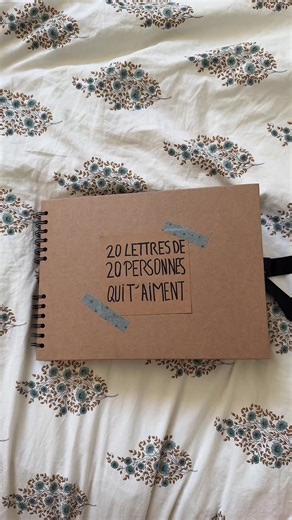 20 LETTRES DE
20 PERSONNES
QUI T'AIMENT